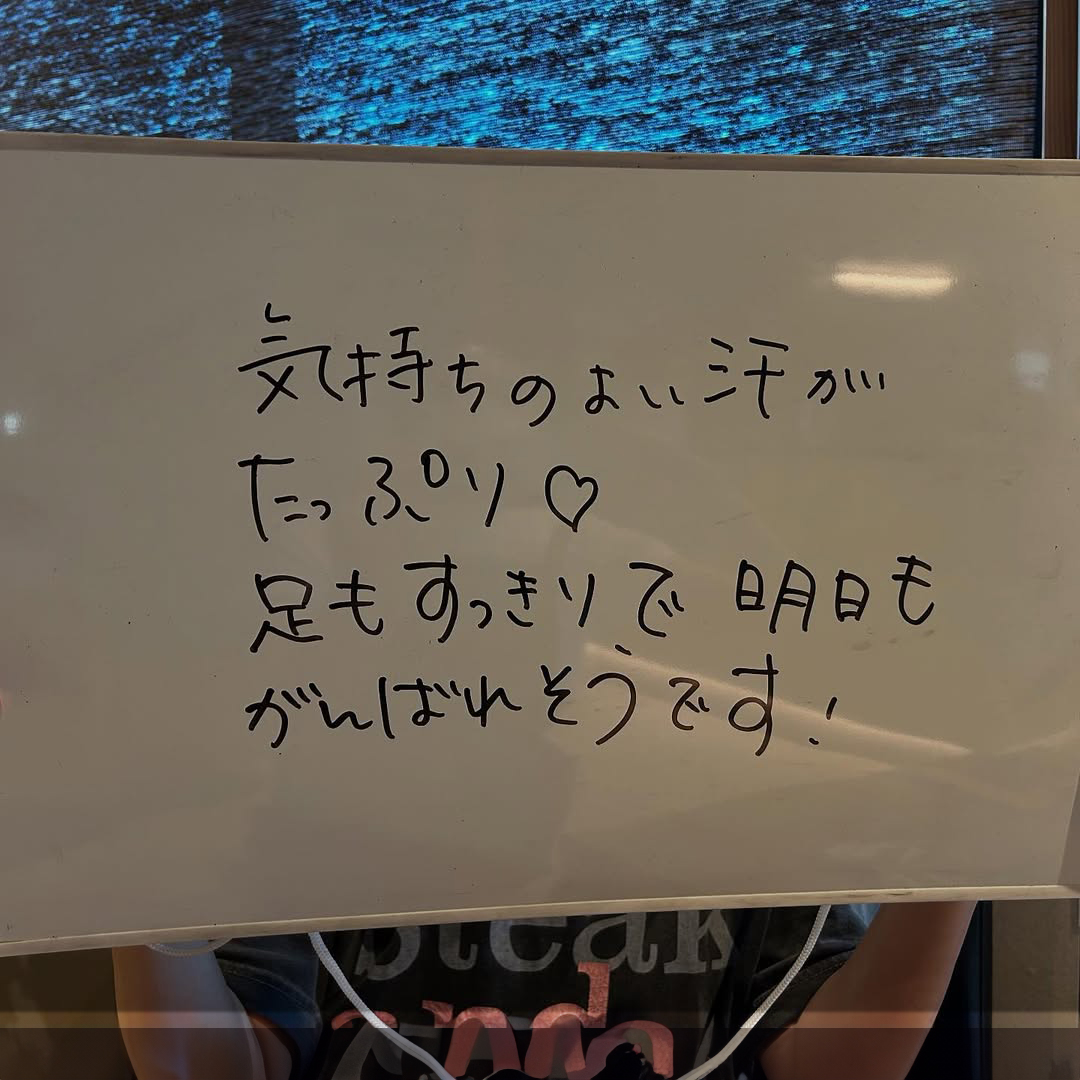 気持ちのよい汗が
たっぷり♡
足もすっきりで 明日も
がんばれそうです!
steak
and